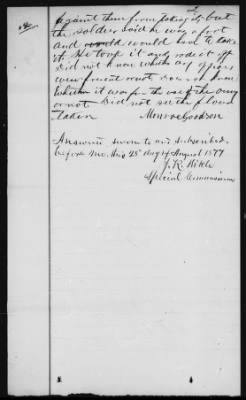 against them from taking it, but
the soldier said he was afoot
and would would have to take
it. He took it and rode it off
Did not know whether any officers
were present or not Does not know
Whether it was for the use of the army
or not Did not see the flour
taken Monroe Goodson
Answered, sworn to and subscribed
before me, this 28 day of August 1877
J. R.
Special Commissioner